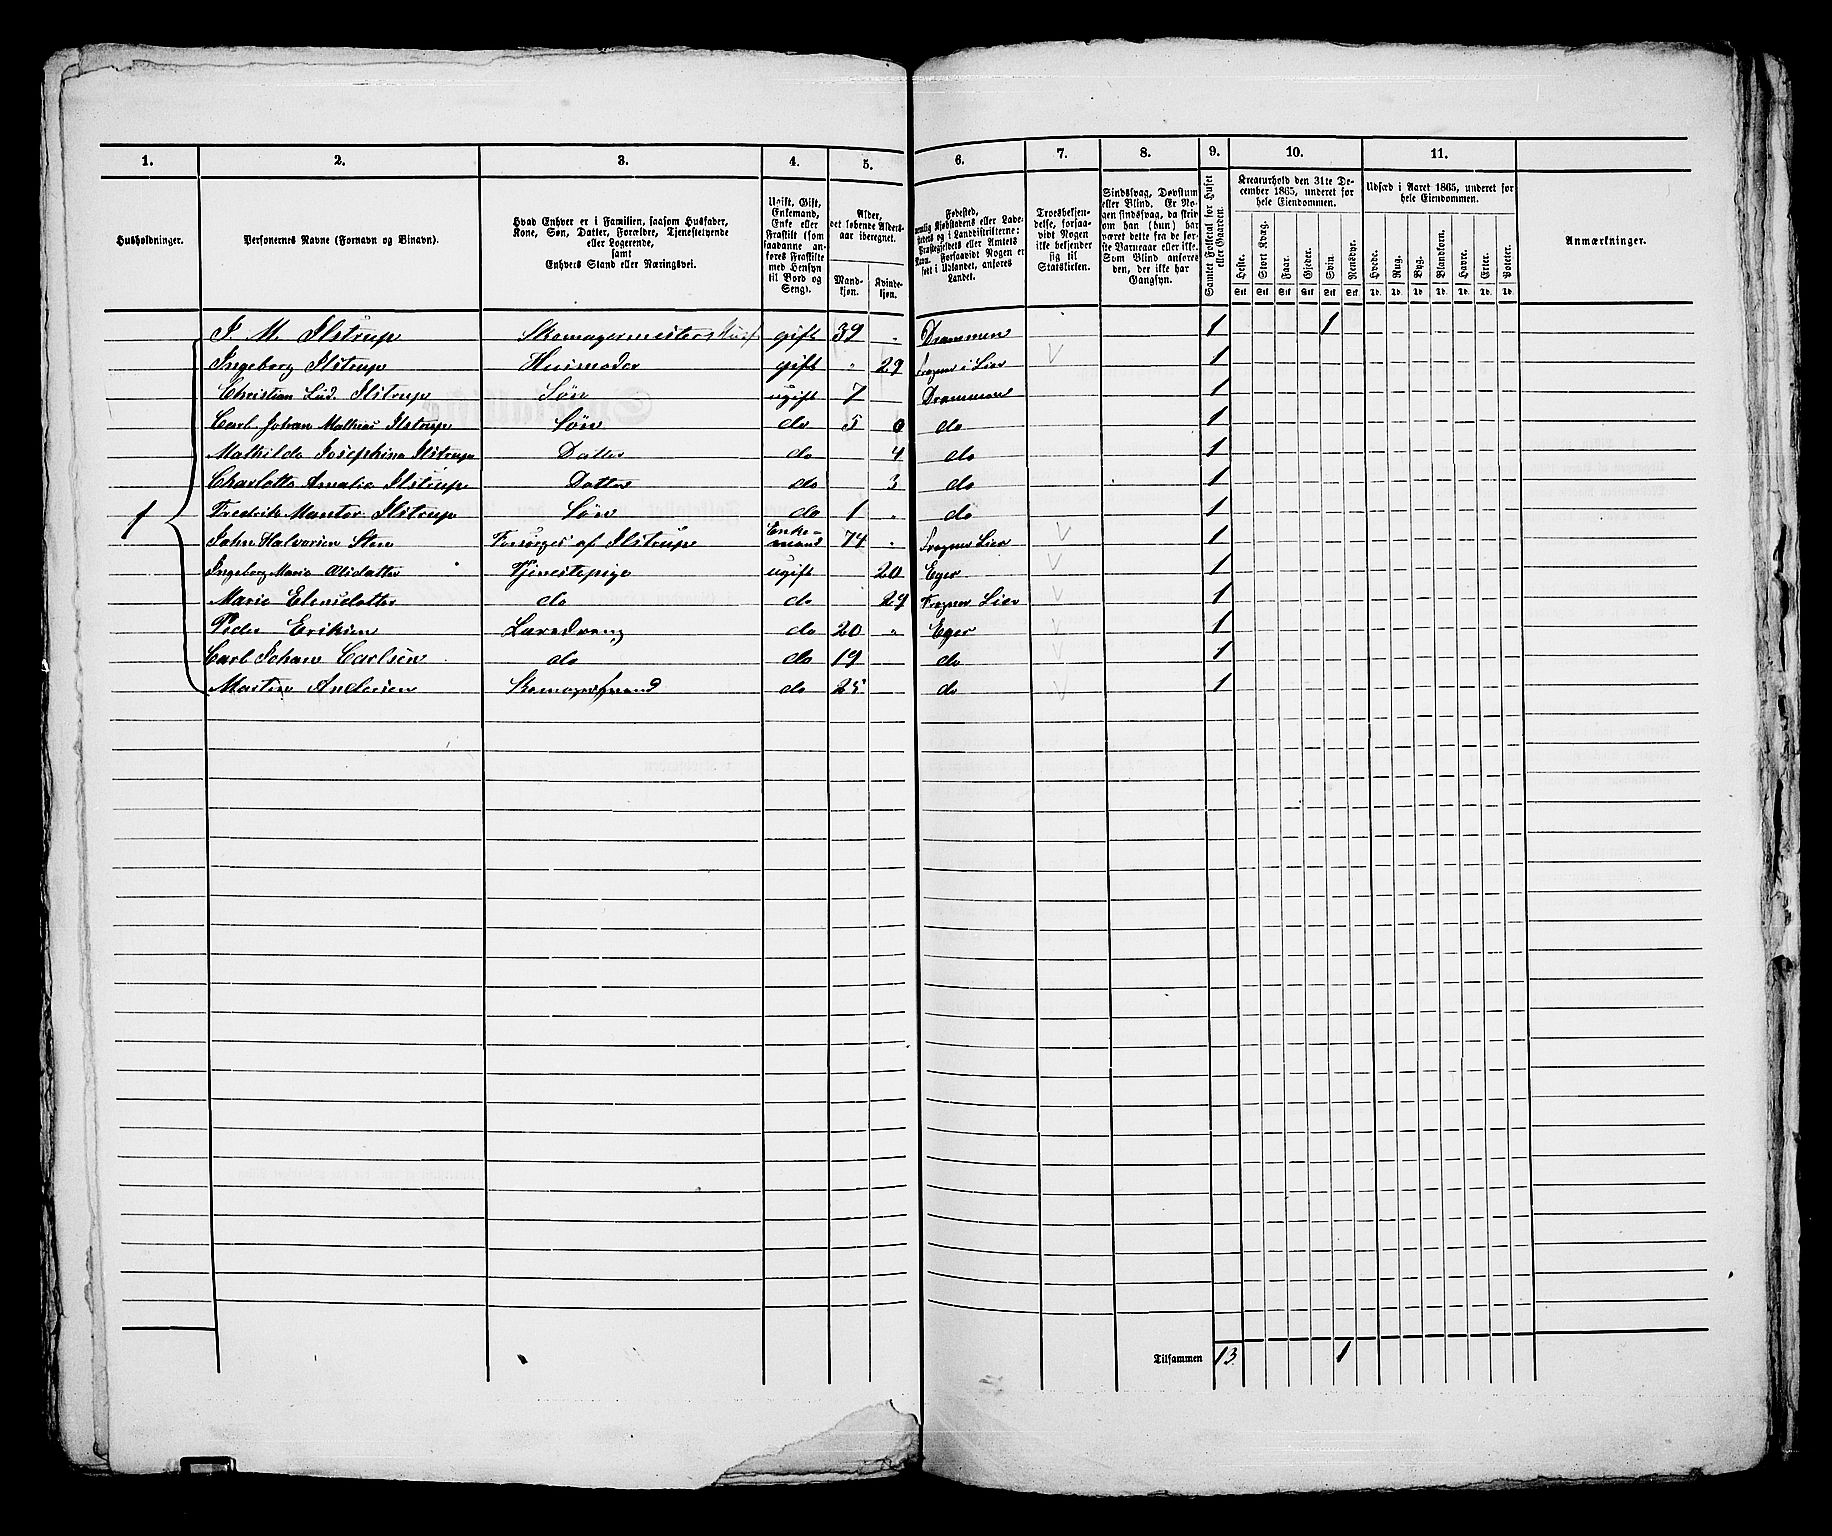 1. 2. 3. 4. 5. 6. 7. 8. 9. 10. 11.
Husholdninger.
Personernes Navne (Fornavn og Binavn).
Hvad Enhver er i Familien, saasom Husfader,
Kone, Søn, Datter, Forældre, Tjenestetyende
eller Logerende,
samt
Enhvers Stand eller Næringsvei.
Ugift, Gift,
Enkemand,
Enke eller
Fraskilt (som
saadanne an-
føres Fraskilte
med Hensyn
til Bord og
Seng).
Alder,
det løbende Alders-
aar iberegnet.
Mand-
kjøn.
Kvinde-
kjøn.
Fødested,
nemlig Kjøbstadens eller Lade-
stedets og i Landdistrikterne:
Præstegjeldets eller Amtets
Navn. Forsaavidt Nogen er
født i Udlandet, anføres
Landet.
Troesbekjen-
delse, forsaa-
vidt Nogen
ikke bekjender
sig til
Statskirken.
Sindssvag, Døvstum
eller Blind. Er No-
gen sindssvag, da skriv
om han (hun) har
været dette fra de før-
ste Barneaar eller ikke.
Som Blind anføres
den, der ikke har
Gangsyn.
Samlet Folketal for Huset
eller Gaarden.
Kreaturhold den 31te De-
cember 1865, underet for
hele Eiendommen.
Heste. Stort Kvæg. Faar. Gjeder. Svin. Rensdyr.
Stk Stk Stk Stk Stk Stk
Udsæd i Aaret 1865, underet for
hele Eiendommen.
Hvede. Rug. Byg. Blandkorn. Havre. Erter. Poteter.
Td. Td. Td. Td. Td. Td. Td.
Anmærkninger.
J. M. Ilstrup Skomagermester gift 39 „ Drammen 1 1
Ingeborg Ilstrup Husmoder gift „ 29 Frogner i Lier 1
Christian Lud. Ilstrup Søn ugift 7 Drammen 1
Carl Johan Mathias Ilstrup Søn do 5 0 do 1
Mathilde Josephine Ilstrup Datter do 4 do 1
Charlotte Amalie Ilstrup Datter do 3 do 1
1 Fredrik Mantor Ilstrup Søn do 1 „ do 1
John Halvorsen Sten Forsørges af Ilstrup Enke-
mand 74 „ Frogner Lier 1
Ingeborg Marie Olsdatter Tjenestepige ugift 20 Eger 1
Marie Elensdatter do do 29 Frogner Lier 1
Peder Eriksen Læredreng do 20 „ Eger 1
Carl Johan Carlsen do do 19 do 1
Martin Andersen Skomagersvend do 25 do 1
Tilsammen 13 1